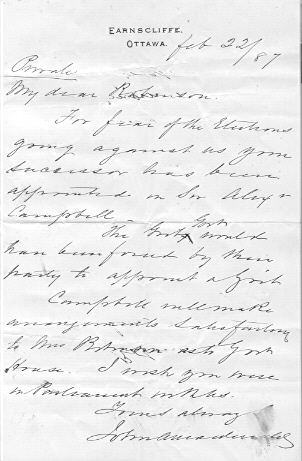 EARNSCLIFFE,
OTTAWA.
Feb 22/87
Private
My dear Robinson.
For fear of the Elections
going against us your
successor has been
appointed in Sir Alexr
Campbell –
The Govt would
have been forced by their
party to appoint a Grit
Campbell will make
arrangements satisfactory
to Mrs Robinson as to Govt
House. I wish you were
in Parliament with us.
Yours always
John A Macdonald